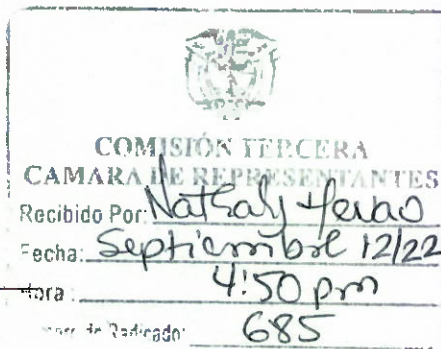 COMISIÓN TERCERA
CAMARA DE REPRESENTANTES
Recibido Por: Nathaly Henao
Fecha: Septiembre 12/22
Hora: 4:50 pm
de Radicado: 685